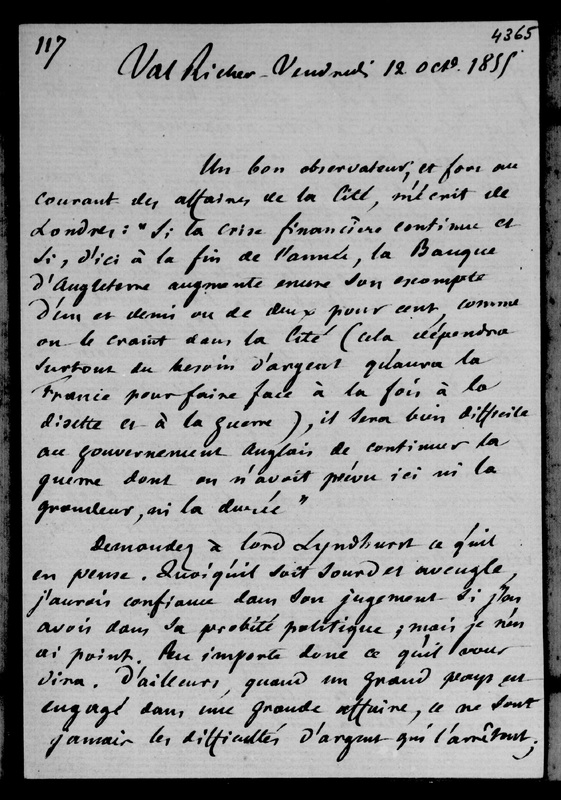 117
4365
Val Richer - Vendredi 12 Octb. 1855
Un bon observateur, et fort au
courant des affaires de la Cité, m'écrit de
Londres : "Si la crise financière continue et
si, d'ici à la fin de l'année, la Banque
d'Angleterre augmente encore son escompte
d'un et demi ou de deux pour cent, comme
on le craint dans la Cité (cela dépendra
surtout du besoin d'argent qu'aura la
France pour faire face à la fois à la
disette et à la guerre), il sera bien difficile
au gouvernement Anglais de continuer la
guerre dont on n'avait prévu ici ni la
grandeur, ni la durée"
Demandez à lord Lyndhurst ce qu'il
en pense. Quoiqu'il soit sourd et aveugle,
j'aurois confiance dans son jugement si j'en
avois dans sa probité politique ; mais je n'en
ai point. Peu importe donc ce qu'il vous
dira. D'ailleurs, quand un grand pays est
engagé dans une grande affaire, ce ne sont
jamais les difficultés d'argent qui l'arrêtent ;